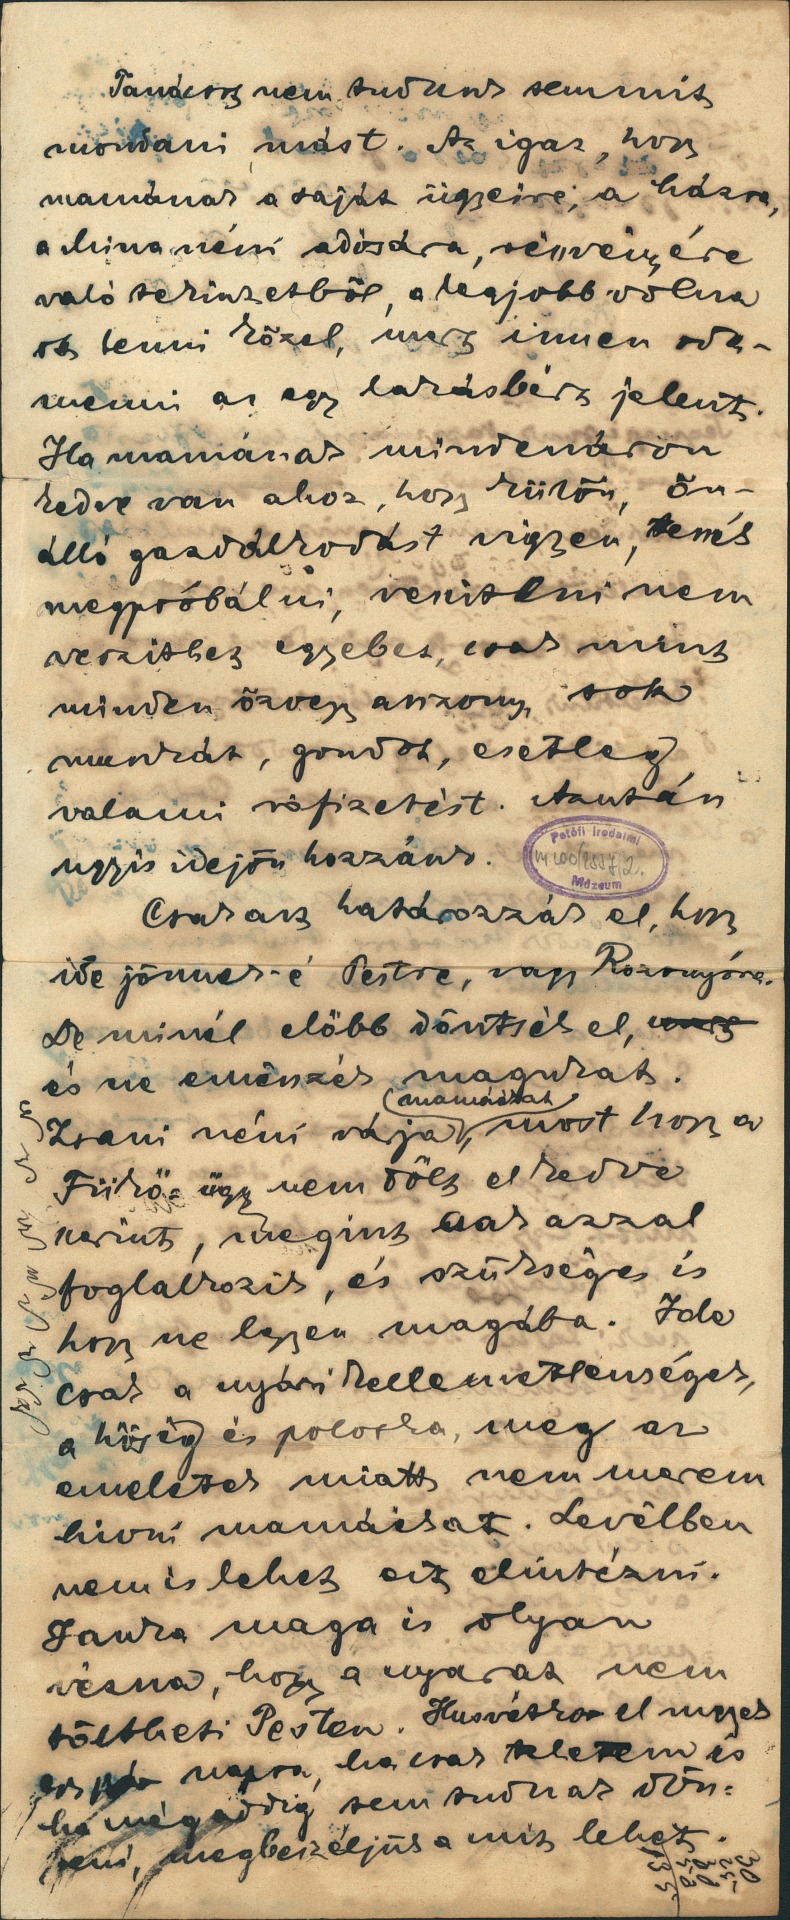 Tanácsot nem tudunk semmit
mondani mást. Az igaz, hogy
mamának a saját ügyeire, a házra,
a Mina néni adósára, részvényére
való tekintetből, a legjobb volna
ott lenni közel, mert innen oda-
menni az egy lakásbért jelent.
Ha mamának mindenáron
kedve van ahoz, hogy külön, ön-
álló gazdálkodást vigyen, tessék
megpróbálni, veszitni nem
veszithet egyebet, csak mint
minden özvegy asszony, sok
munkát, gondot, esetleg
valami ráfizetést. Azután
ugyis idejön hozzánk.
Petőfi Irodalmi
Múzeum
Csak azt határozzák el, hogy
ide jönnek-é Pestre, vagy Rozsnyóra.
De minél előbb döntsék el,
és ne emésszék magukat.
Zsani néni várja (mamáékat), most hogy a
Fürkő-ügy nem dőlt el kedve
szerint, megint csak azzal
foglalkozik, és szükséges is
hogy ne legyen magába. Ide
csak a nyári kellemetlenségek,
a hőség és poloska, meg az
emeletek miatt nem merem
hivni mamáékat. Levélben
nem is lehet ezt elintézni.
Jankа maga is olyan
vézna, hogy a nyarat nem
töltheti Pesten. Husvétkor el megyek
egy pár napra, ha csak tehetem és
ha még addig sem tudnak dön-
teni, megbeszéljük a mit lehet.
30